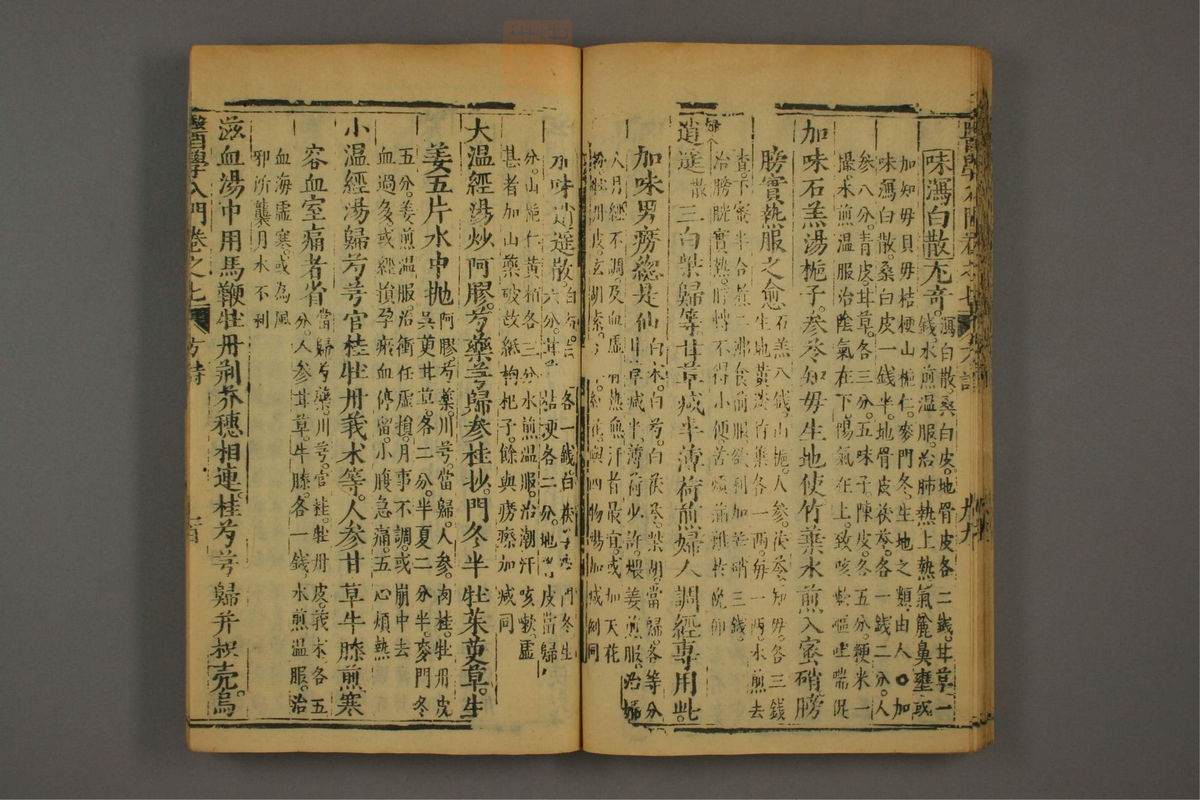 味瀉白散尤奇。瀉白散桑白皮。地骨皮各二錢。甘草一
錢。水煎溫服。治肺熱上熱氣麄鼻壅或
加知母貝母桔梗山梔仁。麥門冬。生地之類。由人○加
味瀉白散。桑白皮一錢半。地骨皮茯苓。各一錢二分。人
參八分。青皮。甘草。各三分。五味子陳皮。各五分。粳米一
撮。水煎溫服治陰氣在下陽氣在上。致咳嗽嘔吐喘促
加味石羔湯梔子。參苓知母生地使竹葉水煎入蜜硝膀
膀實熱服之愈石羔八錢山梔。人參。茯苓。知母。各三錢
生地黃淡竹葉各一兩。每一兩。水煎去
查。下蜜半合煮二沸食前服欲利加芒硝三錢
治膀胱實熱。脬轉不得小便苦煩滿難於俛仰
逍遙散三白柴歸等甘草減半薄荷煎婦人調經專用此。
加味男癆總是仙白朮。白芍。白茯苓。柴胡。當歸各等分
甘草減半。薄荷少許。煨姜煎服。治婦
人月經不調。及血虛有熱無汗者最宜或加天花
四物湯加減例同
加味逍遙散
分。山梔仁黃柏各三分水煎溫服。治潮汗咳嗽虛
甚者加山藥破故紙枸杞子。餘與癆瘵加減同
大溫經湯炒阿膠。芍藥芎歸參桂抄。門冬半牡茱萸草。生
姜五片水中拋阿膠。芍藥。川芎。當歸。人參。肉桂。牡丹皮
吳萸甘草。各二分。半夏二分半。麥門冬
五分。姜煎溫服。治衝任虛損。月事不調。或崩中去
血過多或經損孕瘀血停留。小腹急痛。五心煩熱
小溫經湯歸芍芎官桂牡丹莪朮等。人參甘草牛膝煎寒
客血室痛者省當歸芍藥川芎。官桂。牡丹皮。莪朮各五
分。人參甘草。牛膝。各一錢。水煎溫服。治
血海虛寒。或為風
邪所襲月水不利
滋血湯中用馬鞭牡丹荊芥穗相連。桂芍芎歸并枳壳烏
醫學入門卷之七